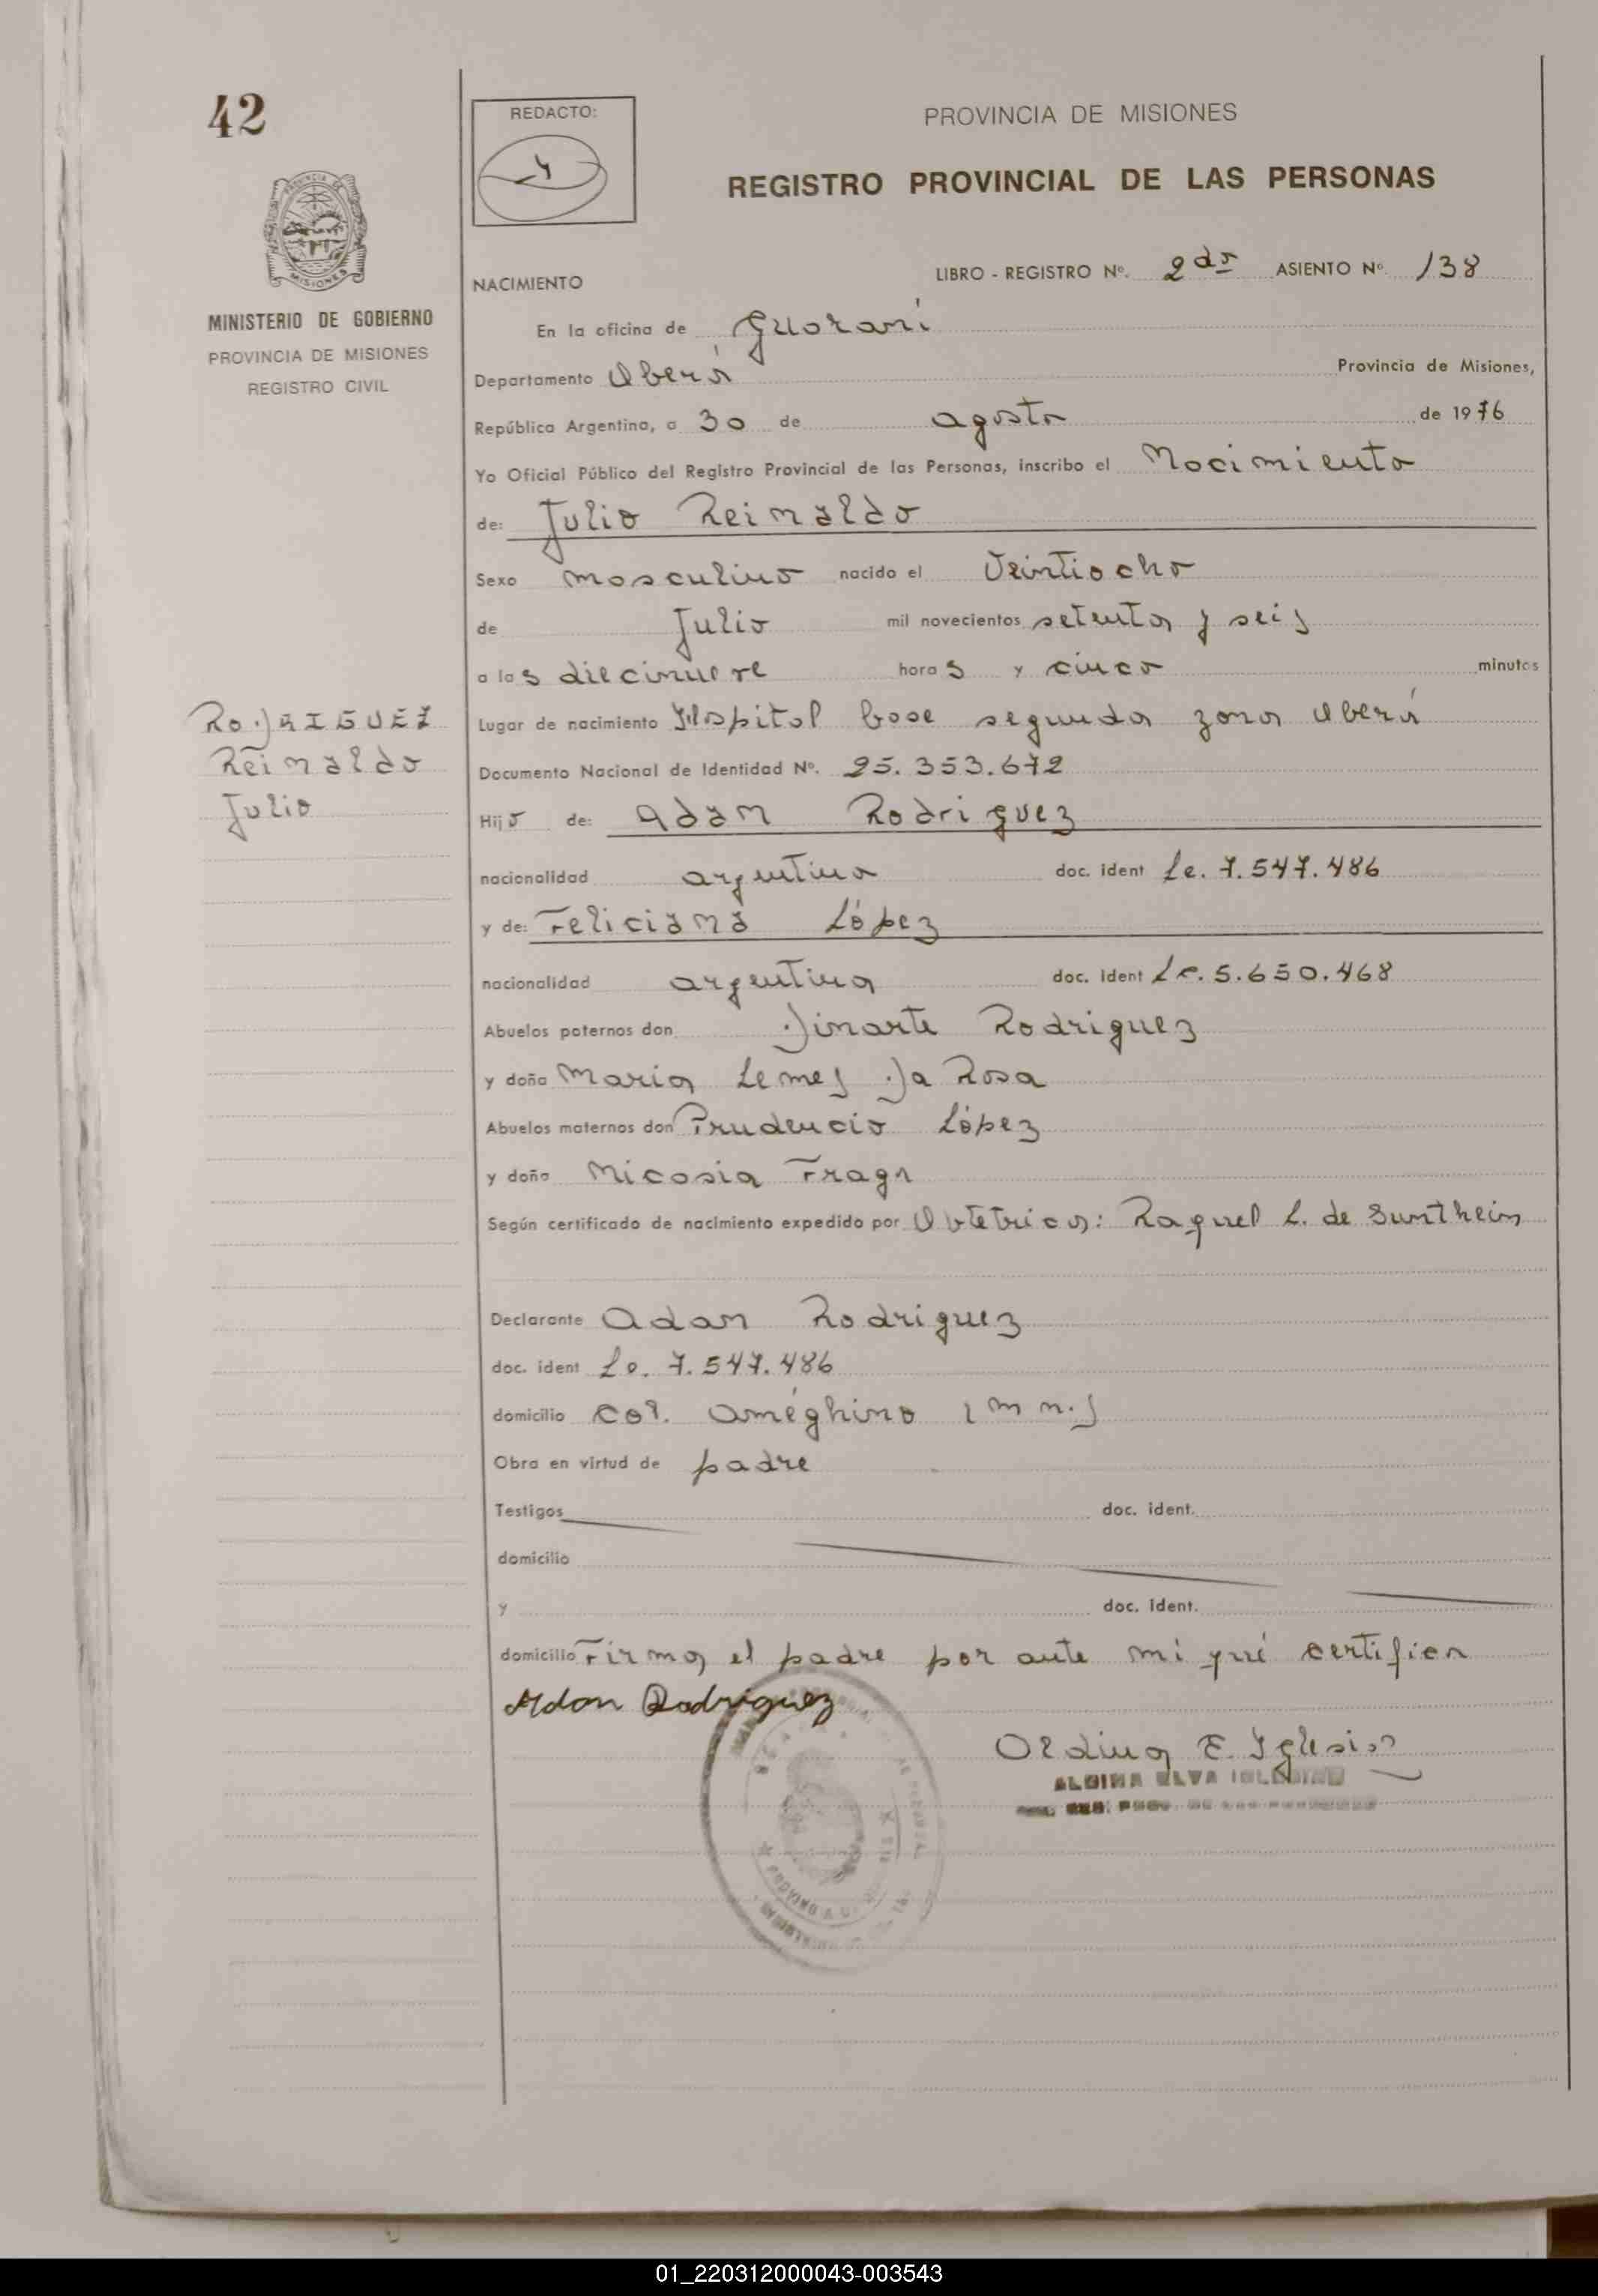 42
REDACTO:
PROVINCIA DE MISIONES
REGISTRO PROVINCIAL DE LAS PERSONAS
PROVINCIA DE
MISIONES
MINISTERIO DE GOBIERNO
PROVINCIA DE MISIONES
REGISTRO CIVIL
NACIMIENTO
LIBRO - REGISTRO Nº. 2do ASIENTO Nº 138
En la oficina de Guarani
Departamento Oberá Provincia de Misiones,
República Argentina, a 30 de agosto de 1976
Yo Oficial Público del Registro Provincial de las Personas, inscribo el Nacimiento
de: Julio Reinaldo
Sexo masculino nacido el Veintiocho
de Julio mil novecientos setenta y seis
a las diecinueve horas y cinco minutos
RODRIGUEZ
Reinaldo
Julio
Lugar de nacimiento Hospital base segunda zona Oberá
Documento Nacional de Identidad Nº. 25.353.672
Hijo de: Adan Rodriguez
nacionalidad argentina doc. ident Le. 7.547.486
y de: Feliciana López
nacionalidad argentina doc. ident Lc. 5.650.468
Abuelos paternos don Dinarte Rodriguez
y doña Maria Lemes Da Rosa
Abuelos maternos don Prudencio López
y doña Nicasia Fraga
Según certificado de nacimiento expedido por Obtetrica: Raquel L. de Suntheim
Declarante Adan Rodriguez
doc. ident Le. 7.547.486
domicilio Col. Améghino (m n.)
Obra en virtud de padre
Testigos doc. ident.
domicilio
y doc. ident.
domicilio Firma el padre por ante mi qué certifica
Adan Rodriguez
Aldina E. Iglesias
ALDINA ELVA IGLESIAS
01_220312000043-003543